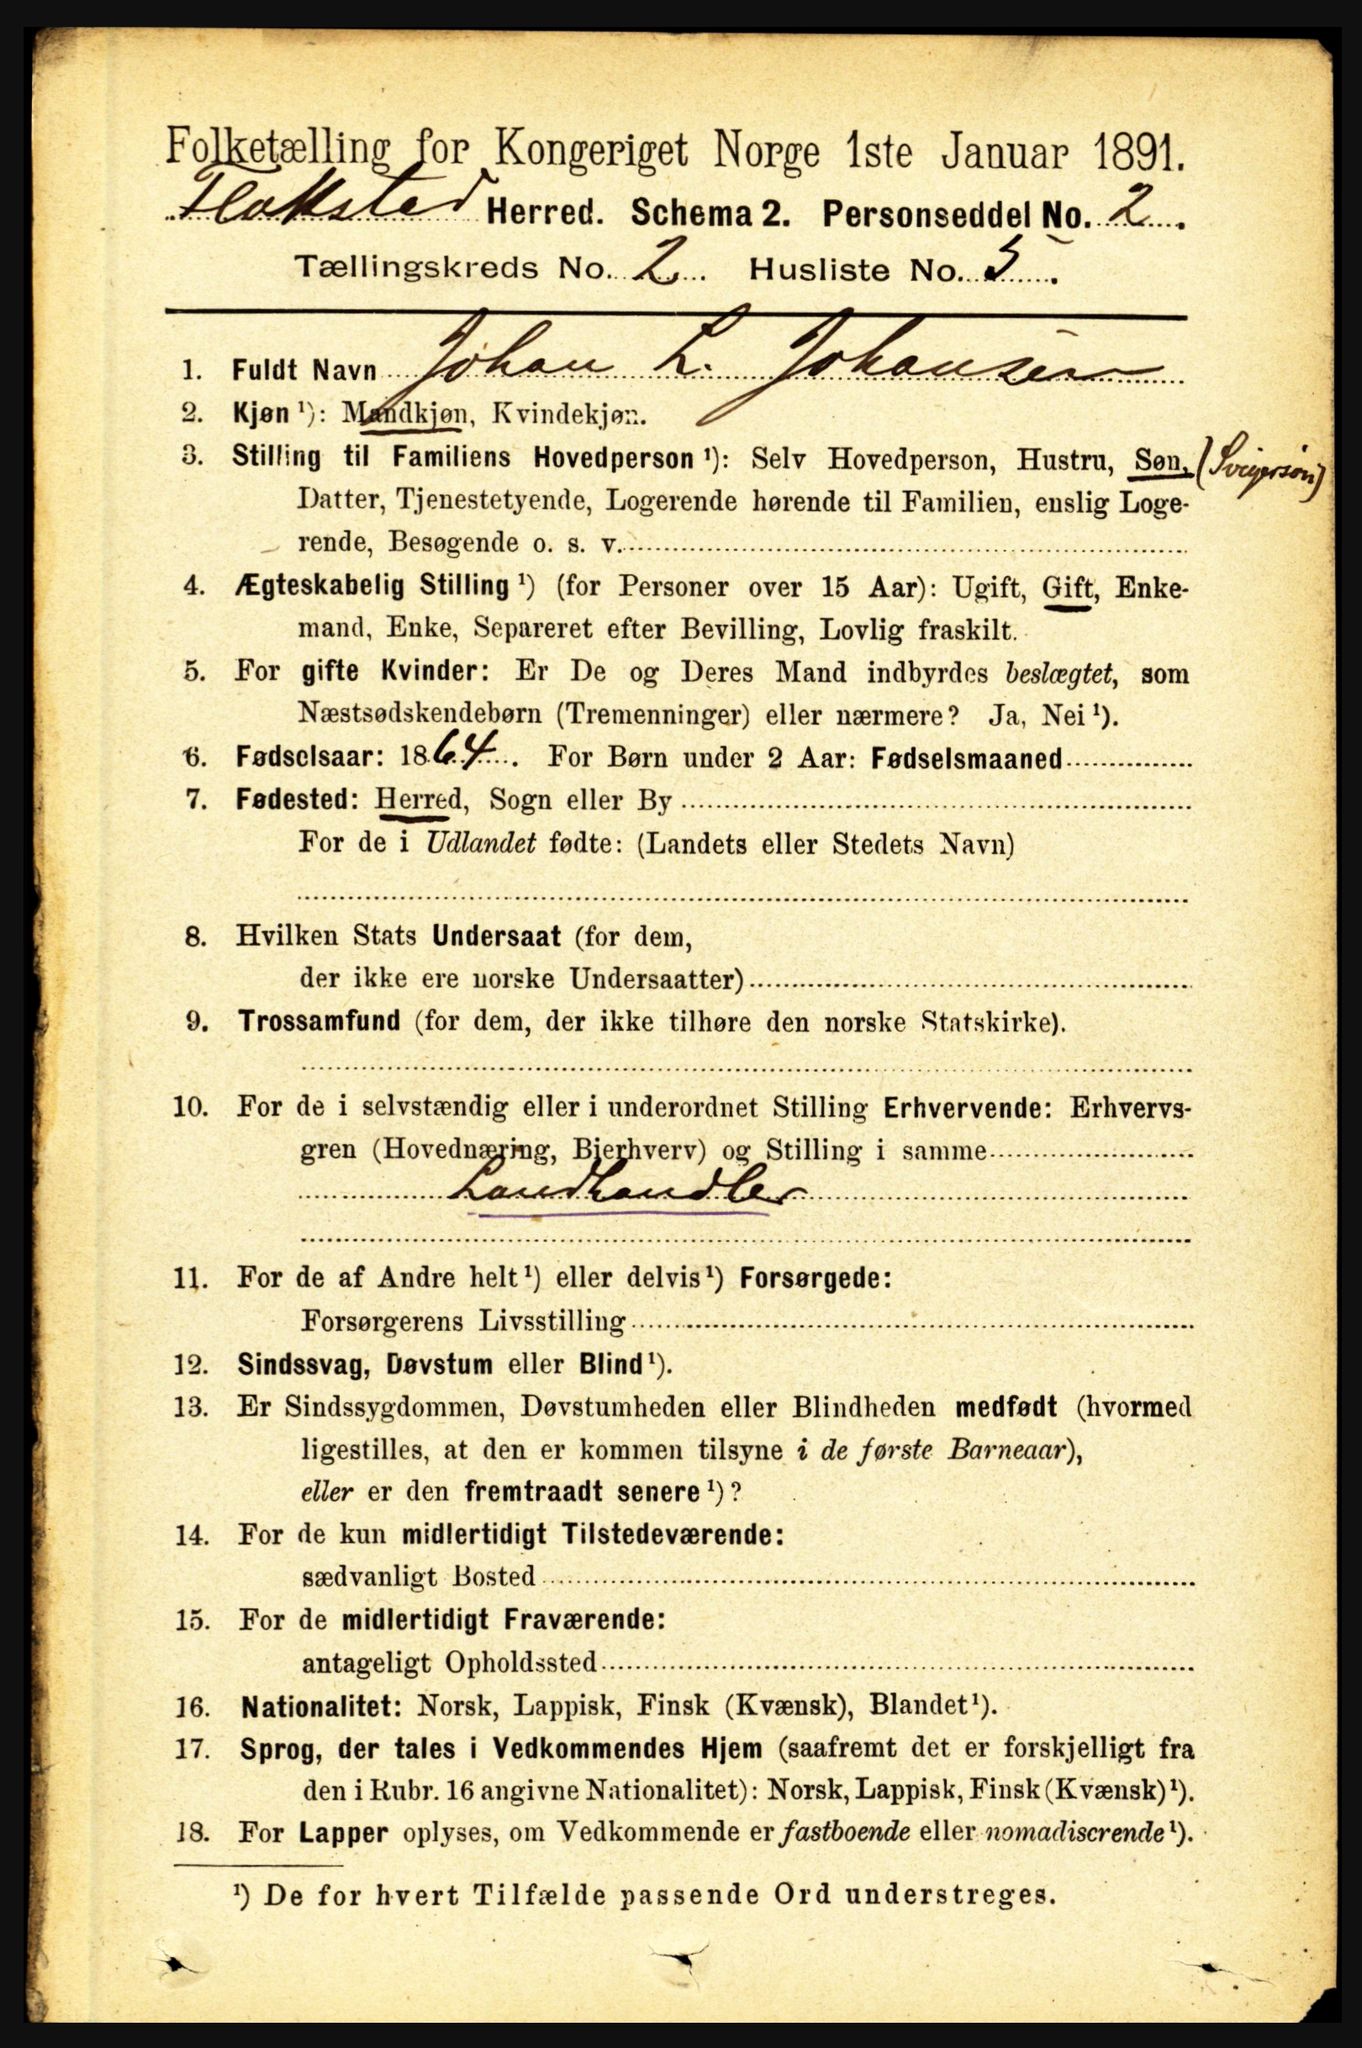 Folketælling for Kongeriget Norge 1ste Januar 1891.
Flakstad Herred. Schema 2. Personseddel No. 2.
Tællingskreds No. 2. Husliste No. 5.
1. Fuldt Navn Johan L. Johansen
2. Kjøn ¹): Mandkjøn, Kvindekjøn.
3. Stilling til Familiens Hovedperson ¹): Selv Hovedperson, Hustru, Søn, (Svigersøn)
Datter, Tjenestetyende, Logerende hørende til Familien, enslig Loge-
rende, Besøgende o. s. v.
4. Ægteskabelig Stilling ¹) (for Personer over 15 Aar): Ugift, Gift, Enke-
mand, Enke, Separeret efter Bevilling, Lovlig fraskilt.
5. For gifte Kvinder: Er De og Deres Mand indbyrdes beslægtet, som
Næstsødskendebørn (Tremenninger) eller nærmere? Ja, Nei ¹).
6. Fødselsaar: 1864. For Børn under 2 Aar: Fødselsmaaned
7. Fødested: Herred, Sogn eller By
For de i Udlandet fødte: (Landets eller Stedets Navn)
8. Hvilken Stats Undersaat (for dem,
der ikke ere norske Undersaatter)
9. Trossamfund (for dem, der ikke tilhøre den norske Statskirke).
10. For de i selvstændig eller i underordnet Stilling Erhvervende: Erhvervs-
gren (Hovednæring, Bierhverv) og Stilling i samme
Landhandler
11. For de af Andre helt ¹) eller delvis ¹) Forsørgede:
Forsørgerens Livsstilling
12. Sindssvag, Døvstum eller Blind ¹).
13. Er Sindssygdommen, Døvstumheden eller Blindheden medfødt (hvormed
ligestilles, at den er kommen tilsyne i de første Barneaar),
eller er den fremtraadt senere ¹)?
14. For de kun midlertidigt Tilstedeværende:
sædvanligt Bosted
15. For de midlertidigt Fraværende:
antageligt Opholdssted
16. Nationalitet: Norsk, Lappisk, Finsk (Kvænsk), Blandet ¹).
17. Sprog, der tales i Vedkommendes Hjem (saafremt det er forskjelligt fra
den i Rubr. 16 angivne Nationalitet): Norsk, Lappisk, Finsk (Kvænsk) ¹).
18. For Lapper oplyses, om Vedkommende er fastboende eller nomadiserende ¹).
¹) De for hvert Tilfælde passende Ord understreges.